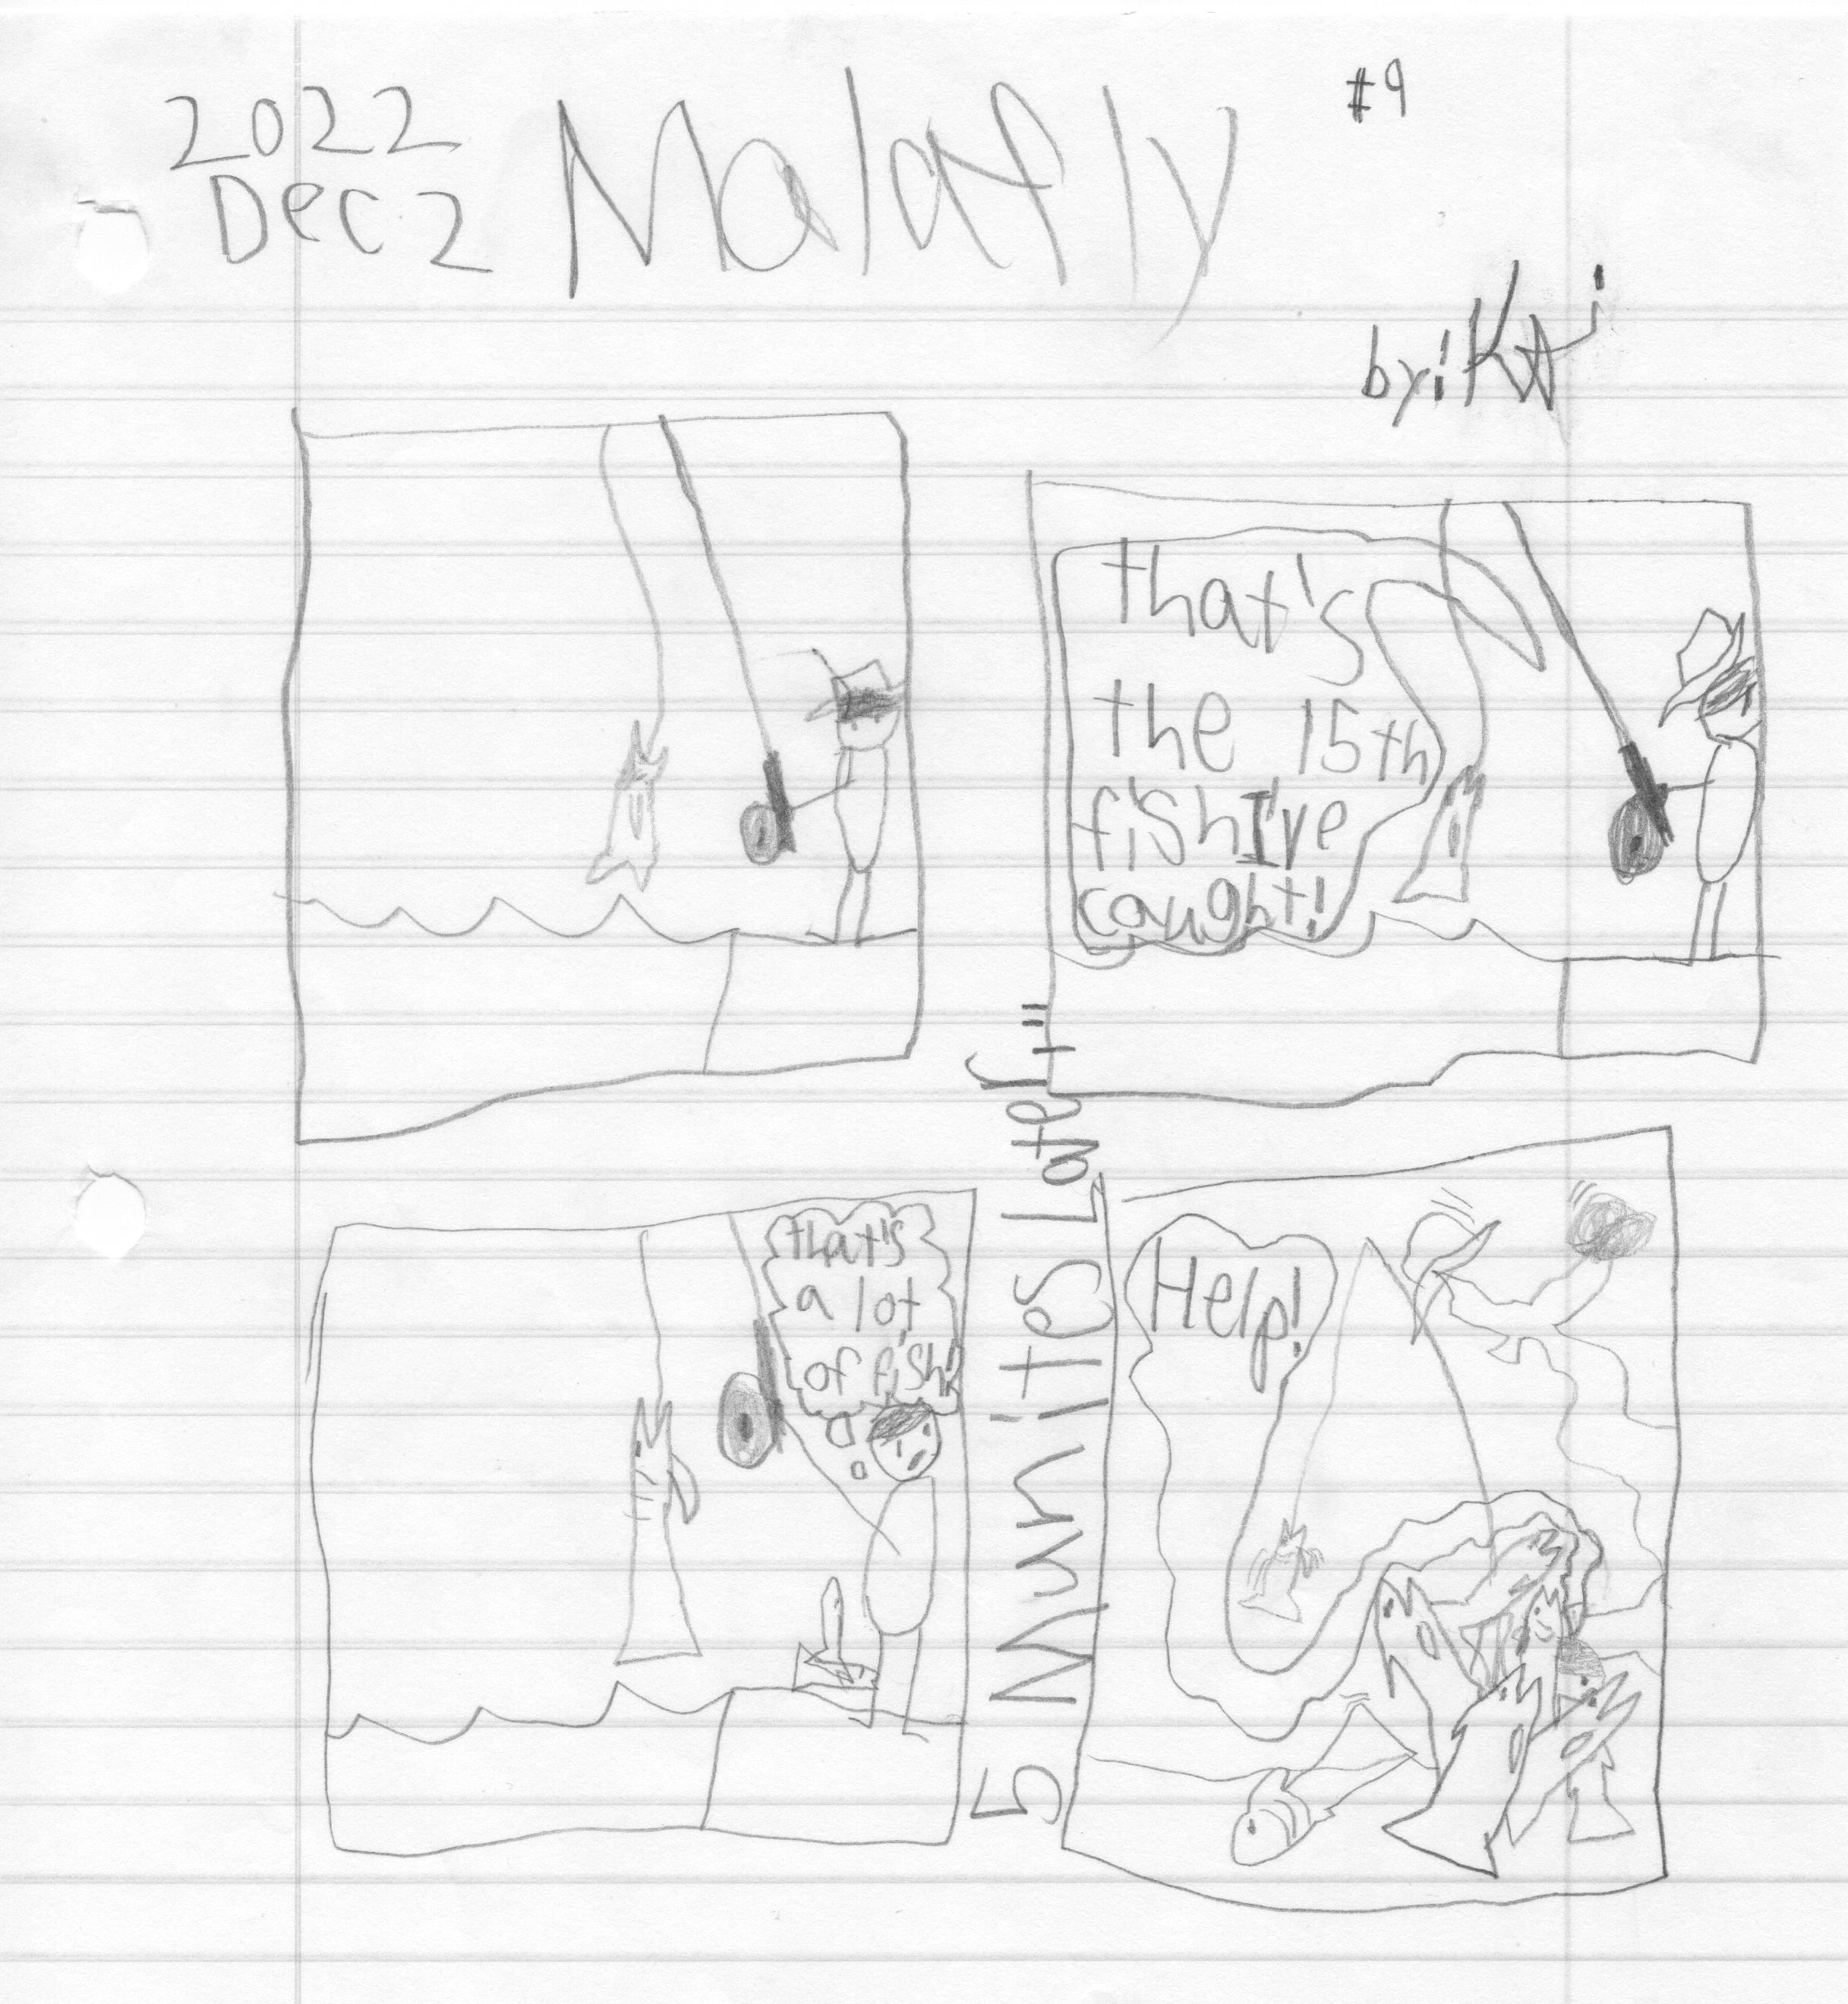 2022
Dec 2
Malafly
#9
by: Kai
that's
the 15th
fish I've
caught!
that's
a lot
of fish!
5 Munites Later...
Help!